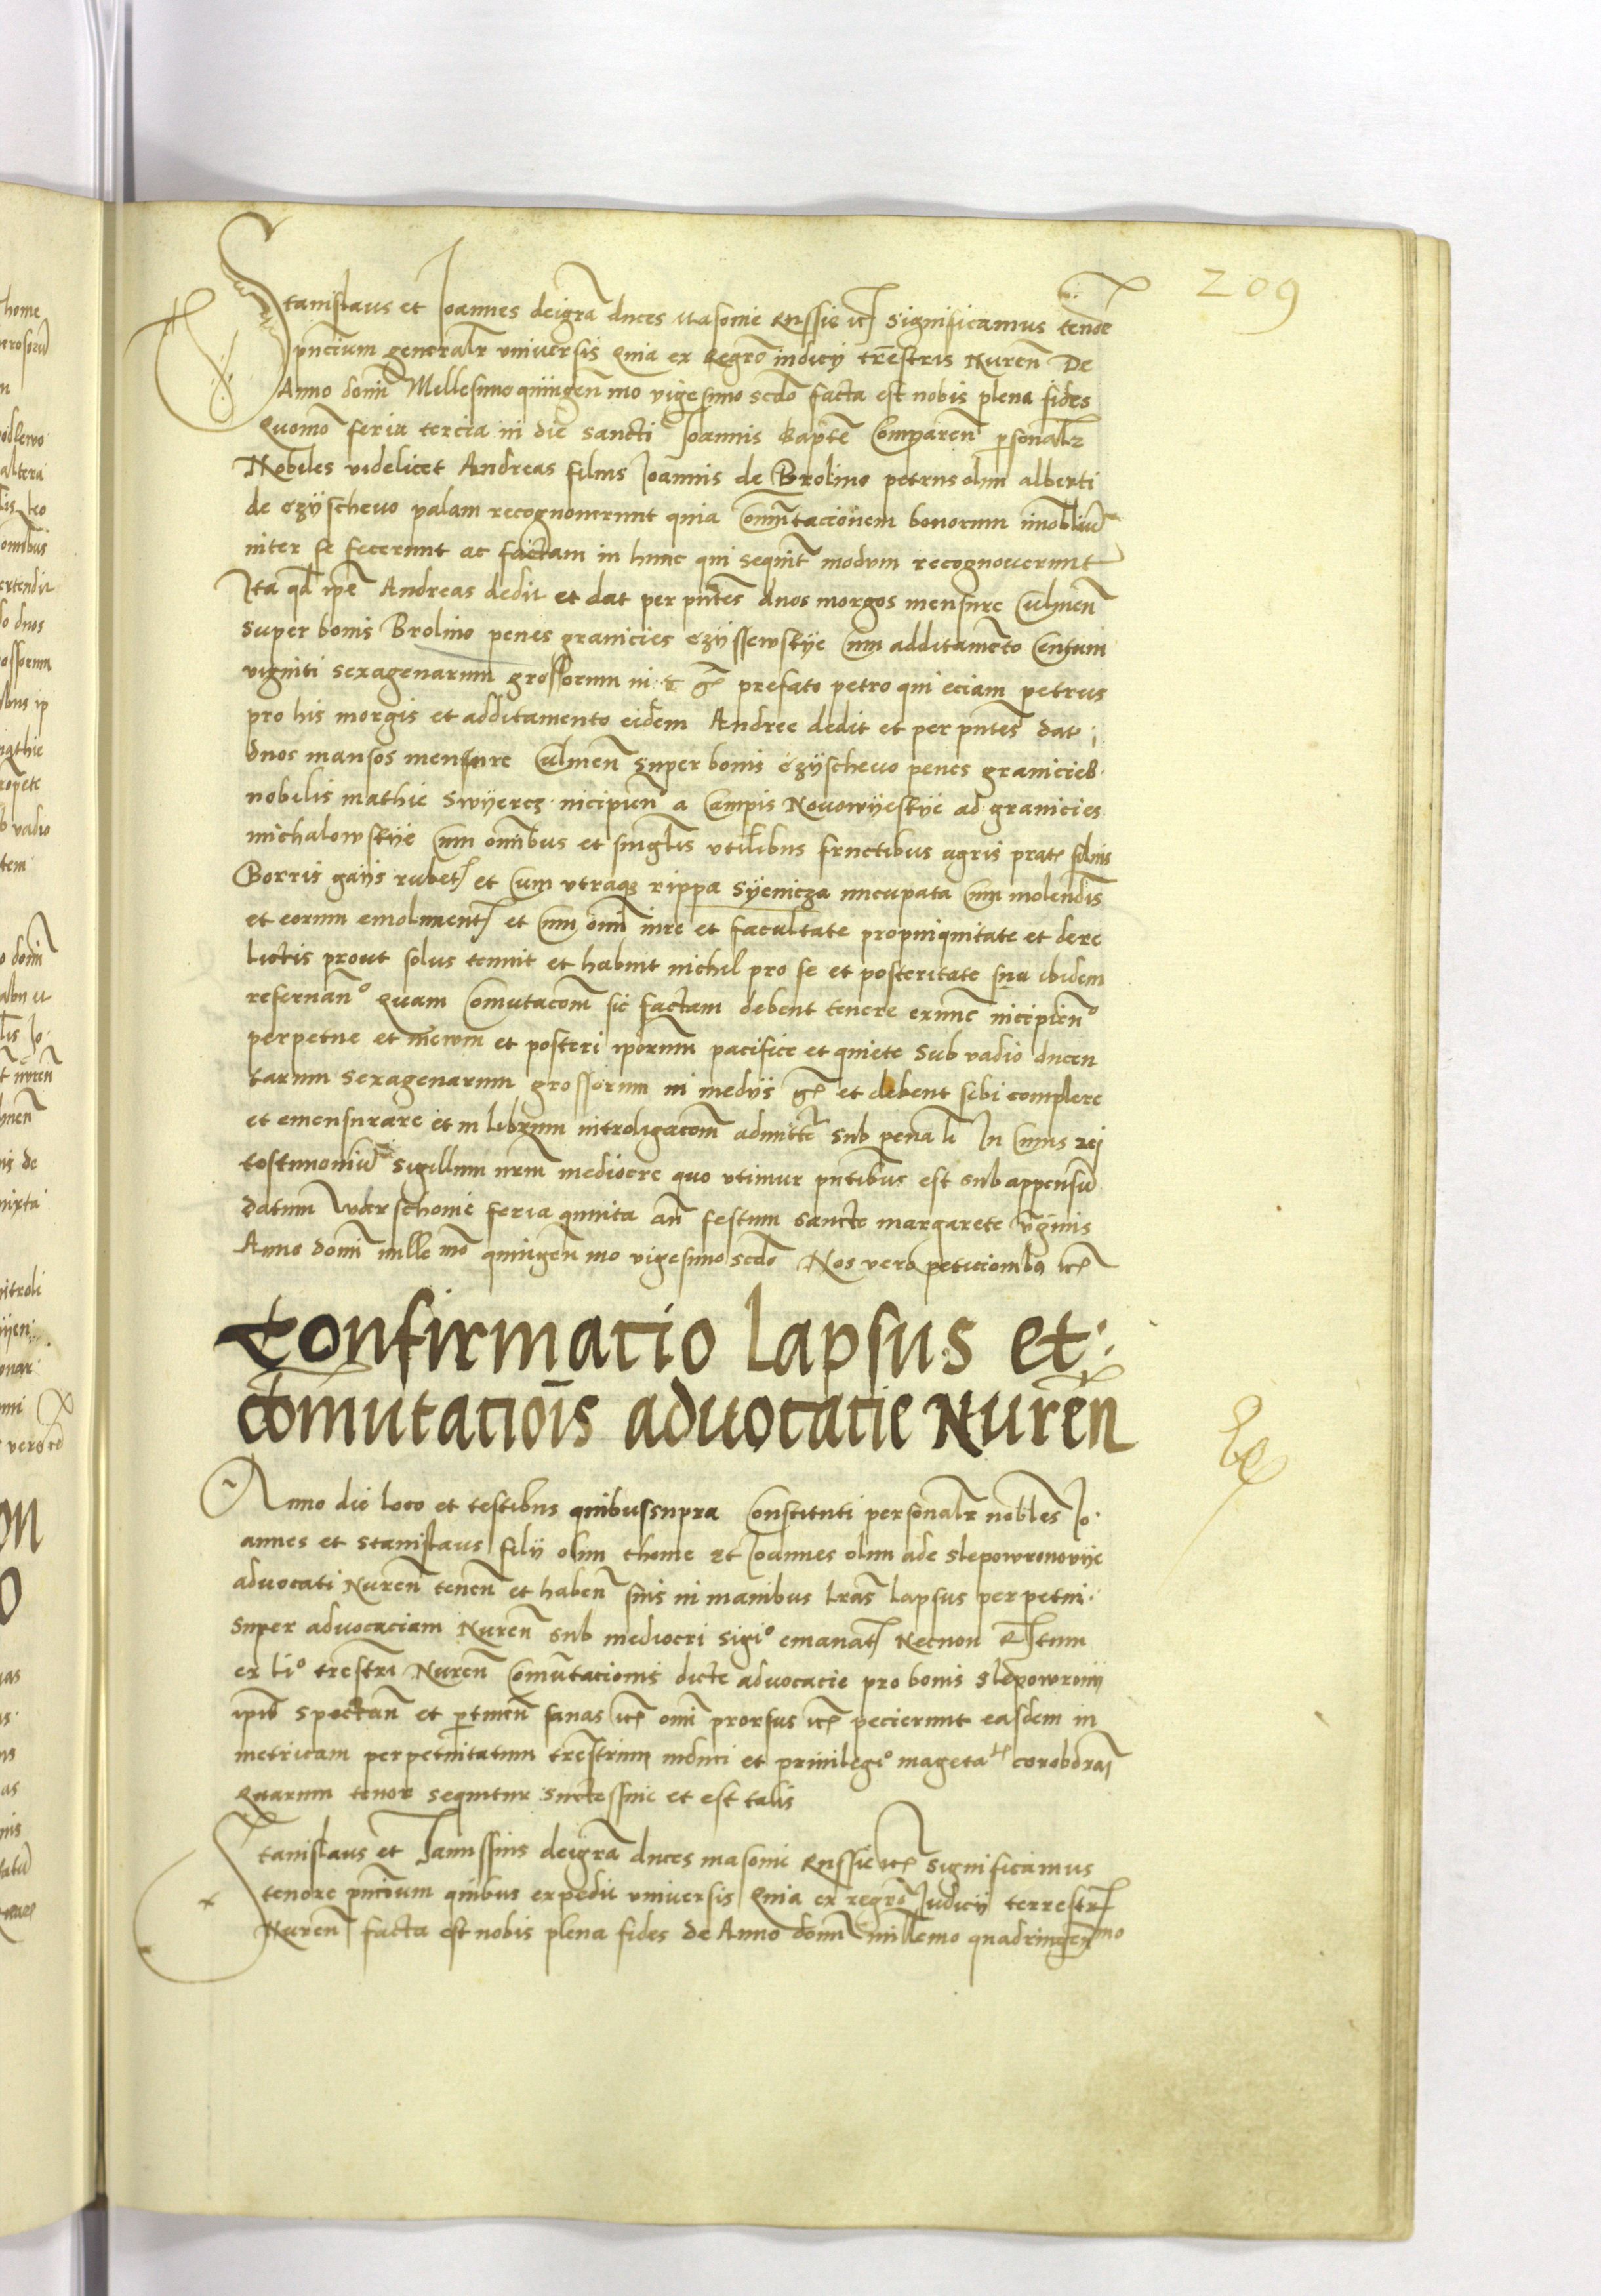 209
Stanislaus et Joannes deigrã duces Masovie Russie etc significamus tenore
pñcium generalr universis Quia ex Regrõ iudicij trestris Nureñ De
Anno domi Millesimo quingeñmo vigesimo scdo facta est nobis plena fides
Quomõ feria tercia in die sancti Joannis Bapte Compareñ psonalr
Nobiles videlicet Andreas filius Joannis de Brolino petrus olim alberti
de czyschevo palam recognoverunt quia Comutacionem bonorum imobiliũ
inter se fecerunt ac factam in hunc qui sequit modum recognoverunt
Ita qd ipe Andreas dedit et dat per pntes duos morgos mensure Culmeñ
super bonis Brolino penes granicies czyssewskye Cum additamento Centum
viginti sexagenarum grossorum in prefato petro qui eciam petrus
pro his morgis et additamento eidem Andree dedit et per pntes dat
duos mansos mensure Culmeñ super bonis czyschevo penes granicies
nobilis mathie Swyercz incipieñ a Campis Novowyeskye ad granicies
michalowskye Cum omibus et singlis utilibus fructibus agris prat silvis
Borris gaijs rubet et Cum utraqz rippa Syenicza nucupata Cum molendis
et eorum emolument et Cum omi iure et facultate propinquitate et dere
lictis prout solus tenuit et habuit nichil pro se et posteritate sua ibidem
reservañ Quam Comutacom sic factam debent tenere exnunc incipieñ
perpetue et inewm et posteri iporum pacifice et quiete sub vadio ducen
tarum sexagenarum grossorum in medijs gr et debent sibi complere
et emensurare et in librum introligacom admitte sub pena li In Cuius rei
testimoniũ sigillum nrm mediocre quo utimur pntibus est subappensũ
datum Varschovie feria quinta añ festum sancte margarete vginis
Anno domi mille mo quingeñmo vigesimo scdo Nos vero peticionibz etc
Confirmatio lapsus et
Comutaciois advocatie Nureñ
Anno die loco et testibus quibussupra Constituti personalr nobiles Jo
annes et Stanislaus filij olim thome et Joannes olim ade Slepowronovye
advocati Nureñ teneñ et habeñ suis in manibus lras lapsus perpetui
super advocaciam Nureñ sub mediocri sigio emanat Necnon Rtum
ex lio trestri Nureñ Comutacionis dicte advocacie pro bonis Slepowronij
ipius spectañ et ptineñ sanas etc omi prorsus etc pecierunt easdem in
metricam perpetuitatum trestrium induci et privilegio mageta corobdrari
Quarum tenor sequitur successive et est talis
Stanislaus et Janussius deigrã duces masovie Russie etc significamus
tenore pñcium quibus expedit universis Quia ex regrõ Judicij terrestr
Nureñ facta est nobis plena fides de Anno domi millemo quadringeñmo